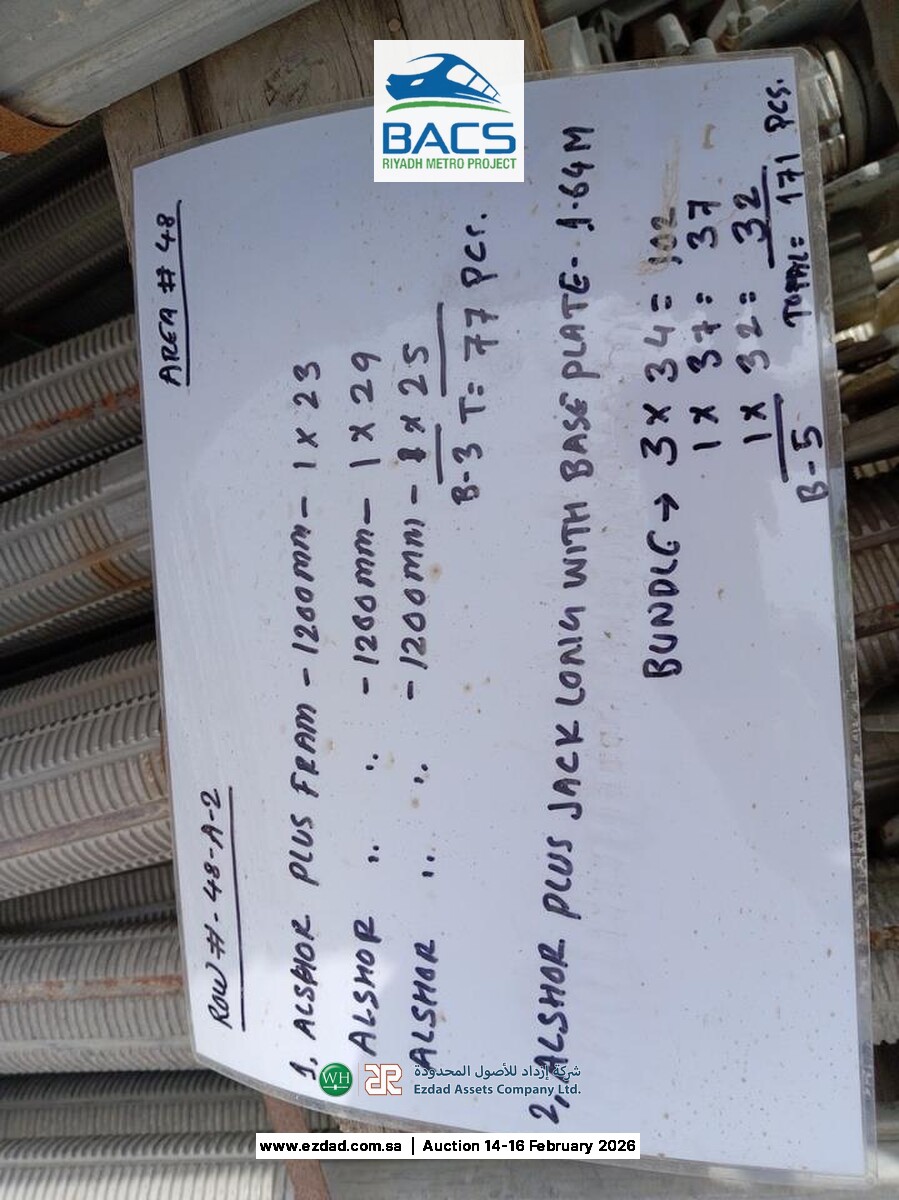 BACS
RIYADH METRO PROJECT
ROW # - 48-A-2
AREA # 48
1. ALSHOR PLUS FRAM - 1200mm - 1 x 23
ALSHOR " " - 1200mm - 1 x 29
ALSHOR " " - 1200mm - 1 x 25
B-3 T= 77 PCS.
2, ALSHOR PLUS JACK LONG WITH BASE PLATE - 1.64M
BUNDLE → 3 x 34 = 102
1 x 37 = 37
1 x 32 = 32
B-5 TOTAL= 171 PCS.
WH
شركة إزداد للأصول المحدودة
Ezdad Assets Company Ltd.
www.ezdad.com.sa | Auction 14-16 February 2026